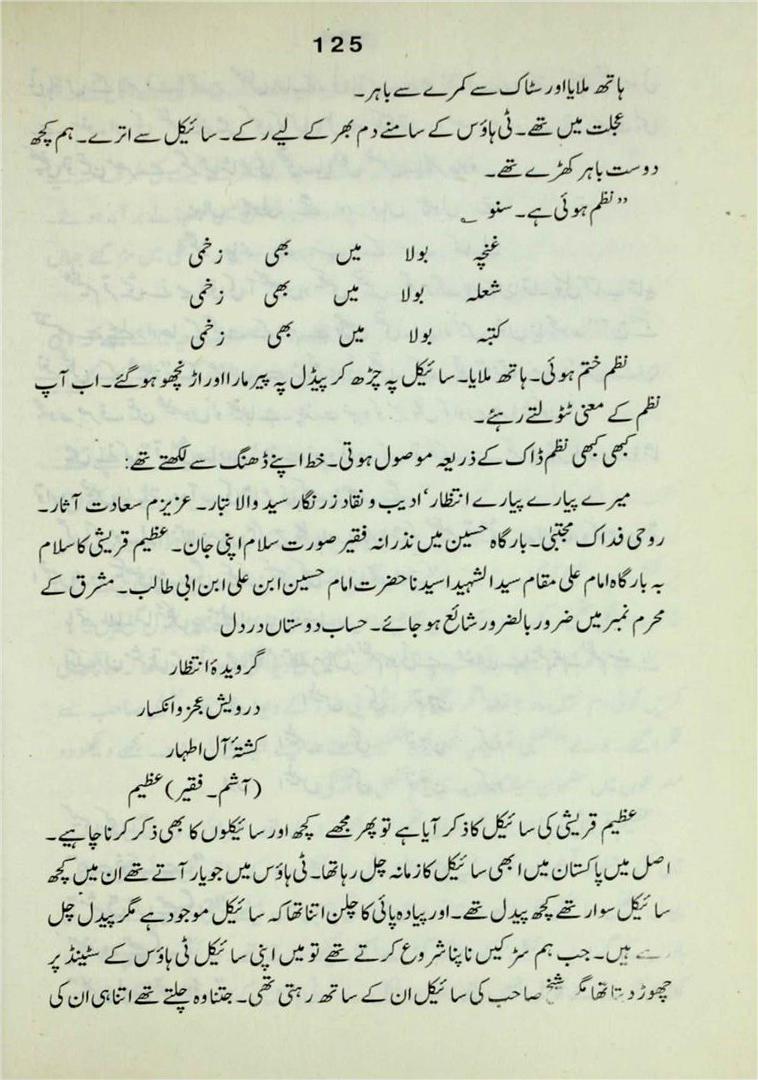 125
ہاتھ ملایا اور سٹاک سے کمرے سے باہر۔
عجلت میں تھے۔ ٹی ہاؤس کے سامنے دم بھر کے لیے رکے۔ سائیکل سے اترے۔ ہم کچھ
دوست باہر کھڑے تھے۔
”نظم ہوئی ہے۔ سنو ؎
غنچہ بولا میں بھی زخمی
شعلہ بولا میں بھی زخمی
کتبہ بولا میں بھی زخمی
نظم ختم ہوئی۔ ہاتھ ملایا۔ سائیکل پہ چڑھ کر پیڈل پہ پیر مارا اور اڑنچھو ہو گئے۔ اب آپ
نظم کے معنی ٹٹولتے رہئے۔
کبھی کبھی نظم ڈاک کے ذریعہ موصول ہوتی۔ خط اپنے ڈھنگ سے لکھتے تھے:
میرے پیارے پیارے انتظار‘ ادیب و نقاد زرنگار سید والا تبار۔ عزیزم سعادت آثار۔
روحی فداک مجتبیٰ۔ بارگاہ حسین میں نذرانہ فقیر صورت سلام اپنی جان۔ عظیم قریشی کا سلام
بہ بارگاہ امام علی مقام سید الشہیدا سیدنا حضرت امام حسین ابن علی ابن ابی طالب۔ مشرق کے
محرم نمبر میں ضرور بالضرور شائع ہو جائے۔ حساب دوستاں در دل
گرویدۂ انتظار
درویش عجز و انکسار
کشتۂ آل اطہار
(آشم۔ فقیر) عظیم
عظیم قریشی کی سائیکل کا ذکر آیا ہے تو پھر مجھے کچھ اور سائیکلوں کا بھی ذکر کرنا چاہیے۔
اصل میں پاکستان میں ابھی سائیکل کا زمانہ چل رہا تھا۔ ٹی ہاؤس میں جو یار آتے تھے ان میں کچھ
سائیکل سوار تھے کچھ پیدل تھے۔ اور پیادہ پائی کا چلن اتنا تھا کہ سائیکل موجود ہے مگر پیدل چل
رہے ہیں۔ جب ہم سڑکیں ناپنا شروع کرتے تھے تو میں اپنی سائیکل ٹی ہاؤس کے سٹینڈ پر
چھوڑ دیتا تھا مگر شیخ صاحب کی سائیکل ان کے ساتھ رہتی تھی۔ جتنا وہ چلتے تھے اتنا ہی ان کی